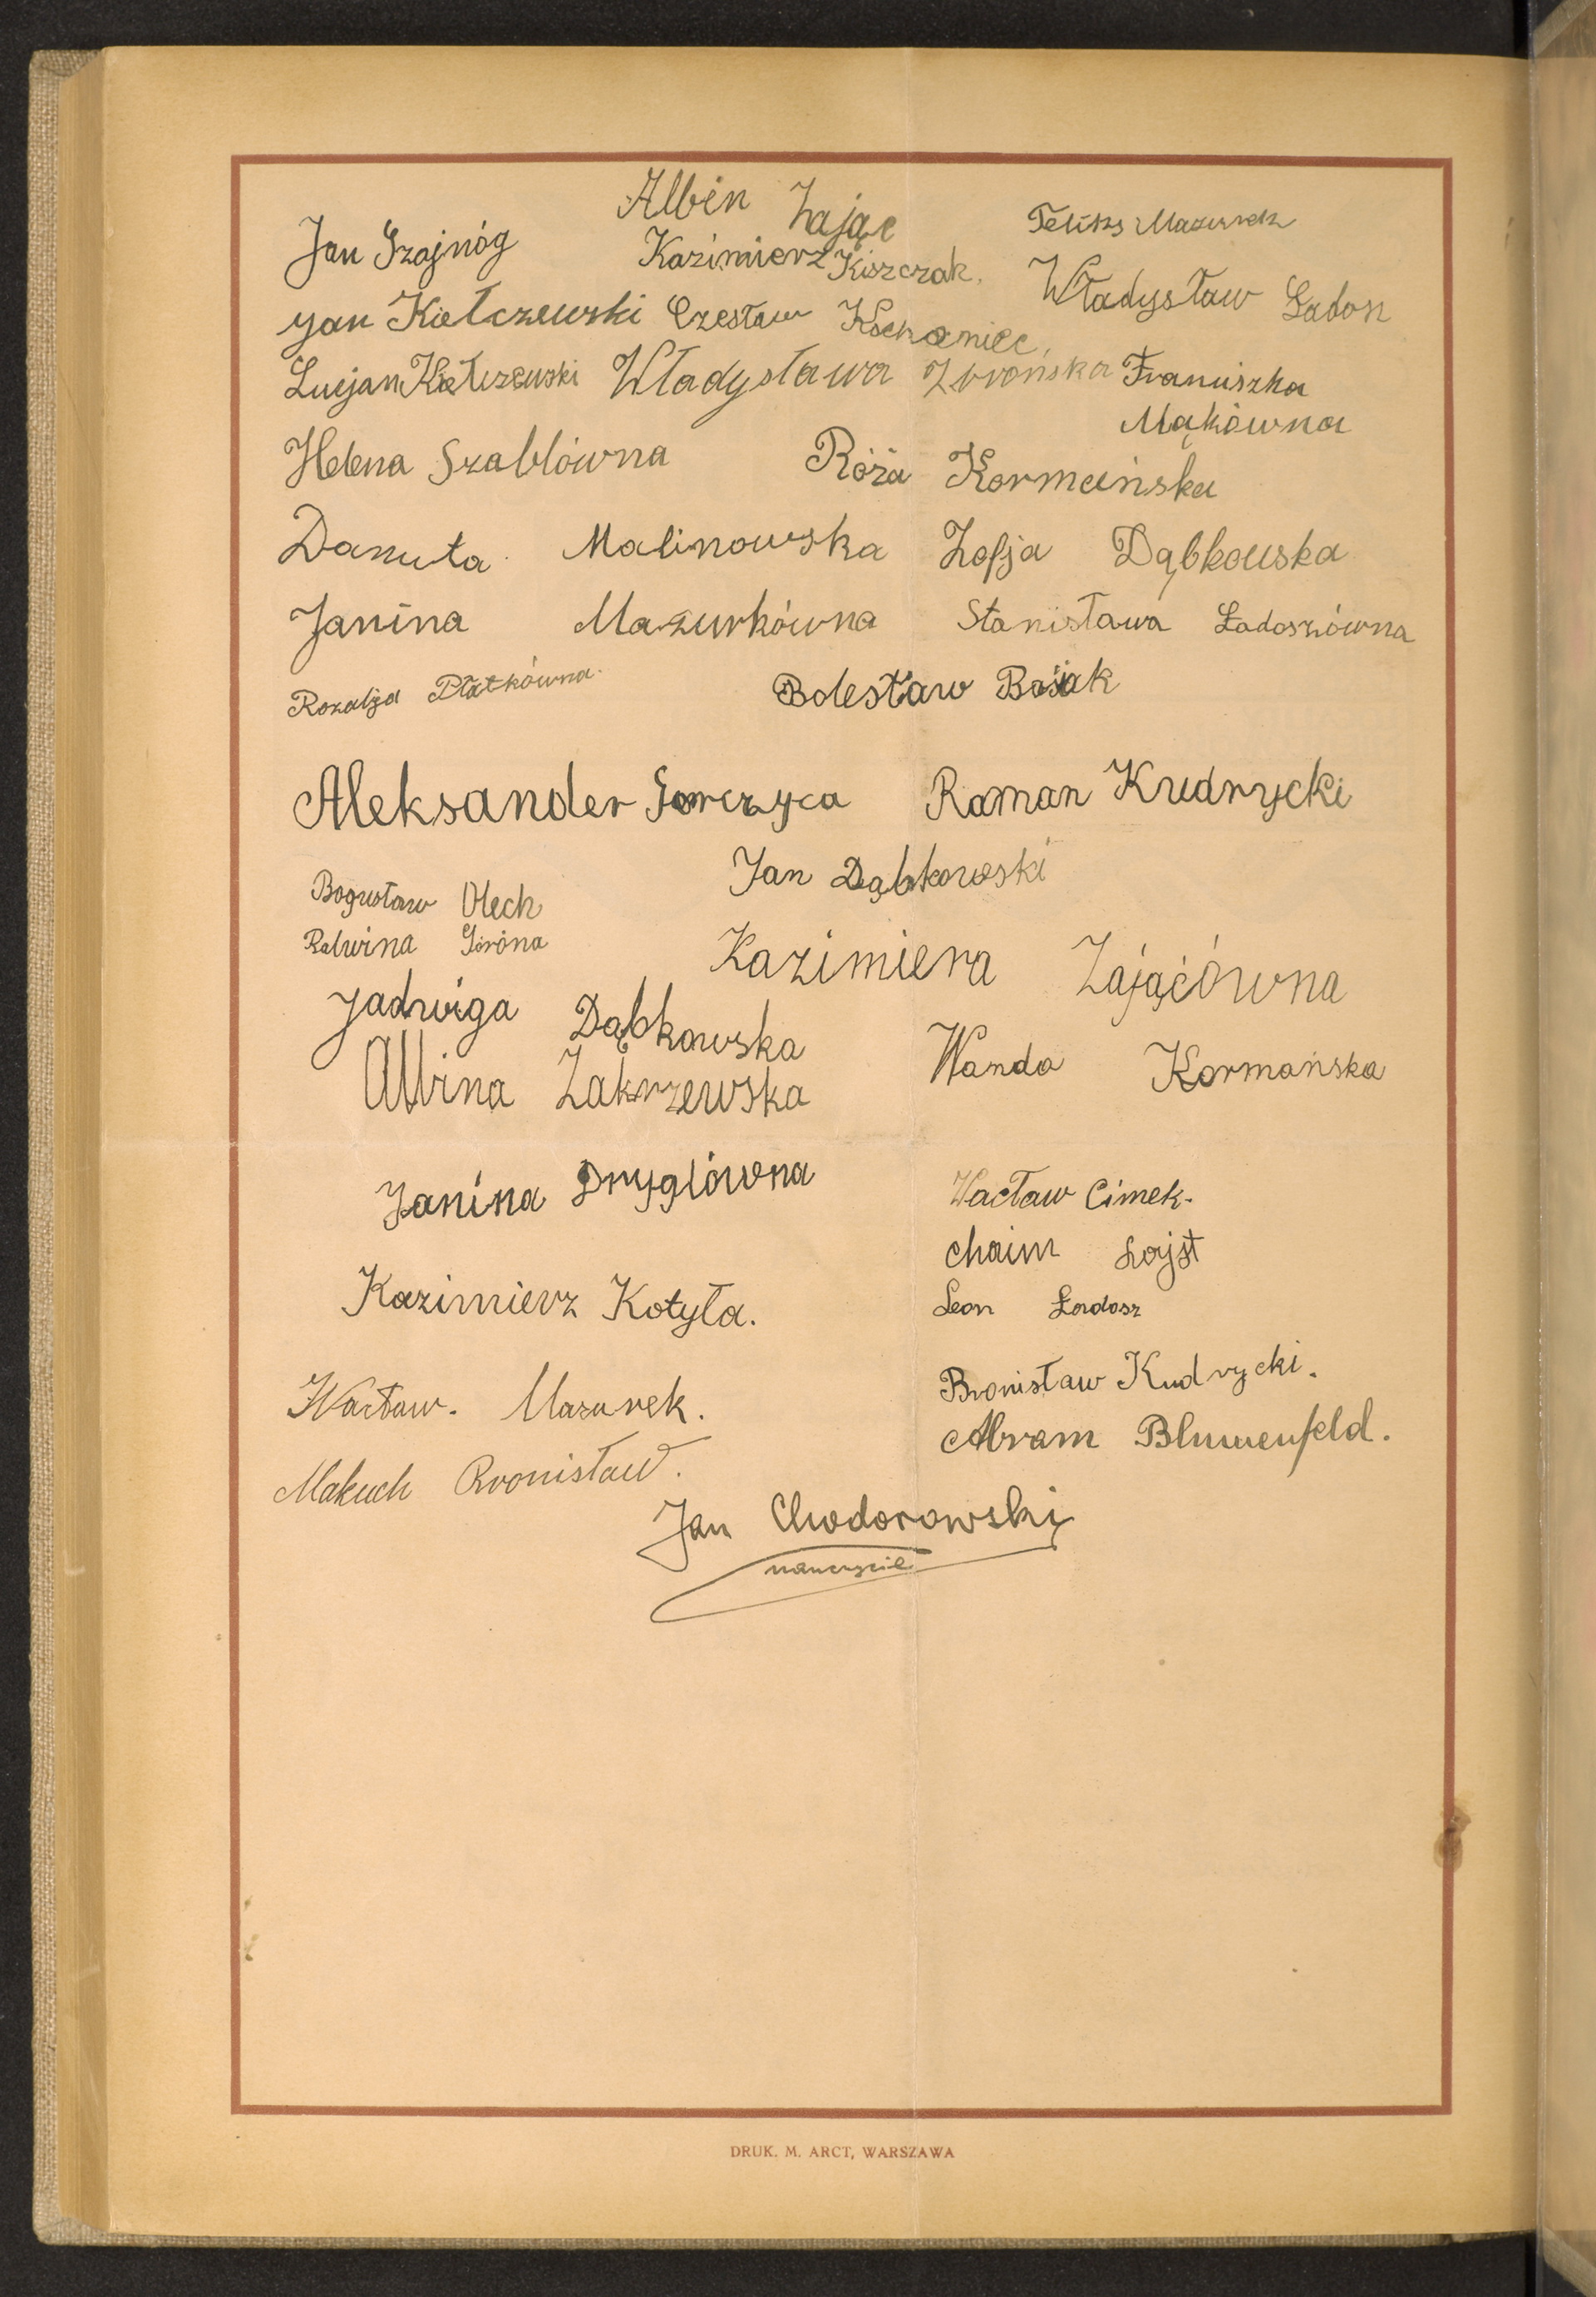 Albin Zając
Jan Szajnóg
Kazimierz Kiszczak.
Feliks Mazurek
Jan Kiełczewski
Czesław Kochaniec,
Władysław Laboń
Lucjan Kiełczewski
Władysława Zwrońska
Franciszka
Mąkówna
Helena Szablówna
Róża Kormańska
Danuta Malinowska
Zofja Dąbkowska
Janina Mazurkówna
Stanisława Ładoszówna
Rozalja Płatkówna.
Bolesław Bosiak
Aleksander Gorczyca
Roman Kudrycki
Jan Dąbkowski
Bogusław Olech
Góróna
Kazimiera Zającówna
Jadwiga Dąbkowska
Albina Zakrzewska
Wanda Kormańska
Janina Dryglówna
Wacław Cimek.
Chaim Lojst
Kazimierz Kotyła.
Leon Ładosz
Wacław. Mazurek.
Bronisław Kudrycki.
Abram Blumenfeld.
Makuch Bronisław.
Jan Chodorowski
nauczyciel
DRUK. M. ARCT, WARSZAWA